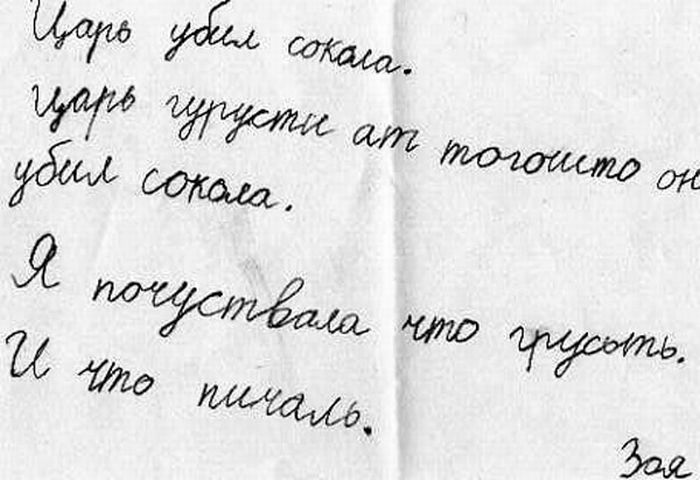 Царь убил сокола.
Царь гурусти ат тогошто он
убил сокола.
Я почуствала что грусть.
И что пичаль.
Зоя